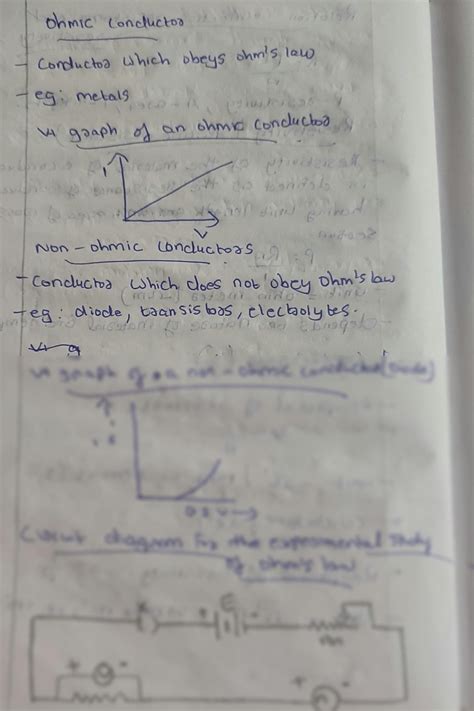 Ohmic Conductor
- Conductor which obeys ohm's law
- eg: metals
VI graph of an ohmic conductor
I
V
Non-ohmic conductors
- Conductor which does not obey Ohm's law
- eg: diode, transistors, electrolytes.
VI g
VI graph of a non-ohmic conductor (diode)
V
Circuit diagram for the experimental study
of ohm's law
+ E -
+ -
+ -